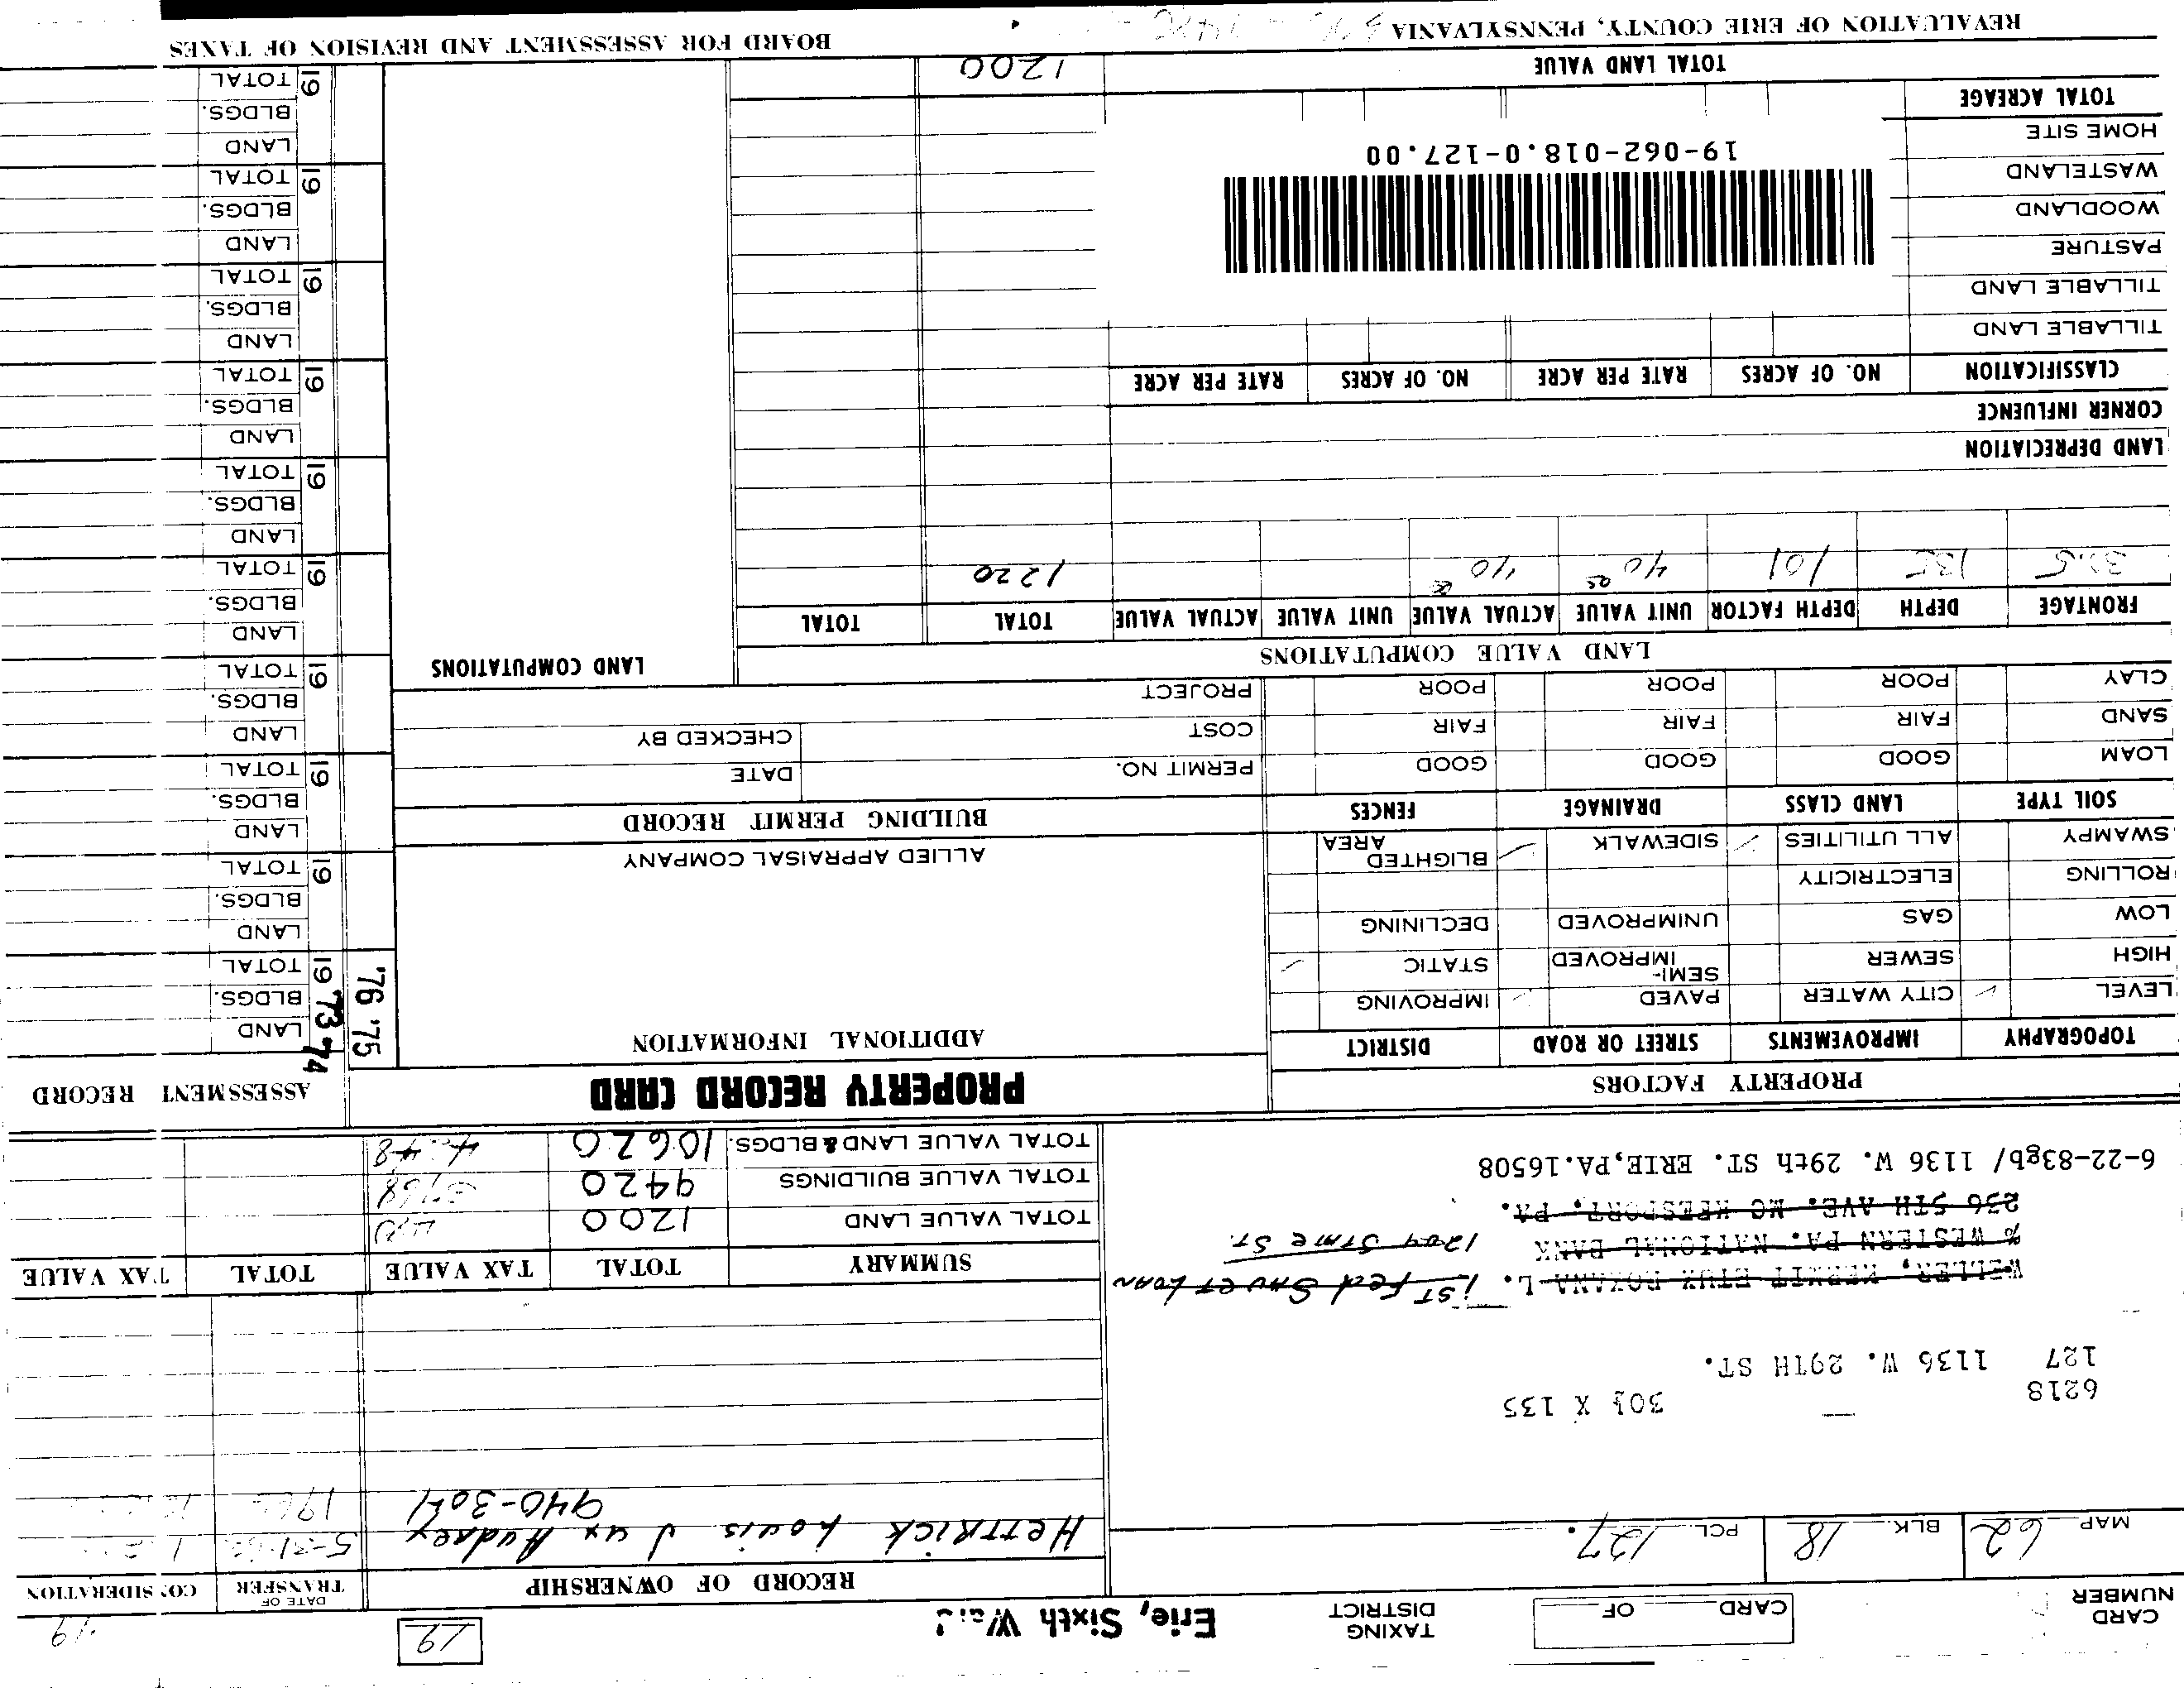 CARD NUMBER
CARD OF
TAXING DISTRICT
Erie, Sixth Ward
19
MAP 62 BLK. 18 PCL. 127.
RECORD OF OWNERSHIP
DATE OF TRANSFER
CONSIDERATION
HETTRICK Louis J ux Audrey
940-304
6218
30½ X 135
127 1136 W. 29TH ST.
WELLER, KERMIT ETUX ROXANA L. 1ST Fed Sav et Loan
% WESTERN PA. NATIONAL BANK 1204 STATE ST.
236 5TH AVE. MC KEESPORT, PA.
6-22-83gb/ 1136 W. 29th ST. ERIE,PA.16508
SUMMARY TOTAL TAX VALUE TOTAL TAX VALUE
TOTAL VALUE LAND 1200
TOTAL VALUE BUILDINGS 9420
TOTAL VALUE LAND & BLDGS. 10620
PROPERTY FACTORS
PROPERTY RECORD CARD
ASSESSMENT RECORD
TOPOGRAPHY IMPROVEMENTS STREET OR ROAD DISTRICT
LEVEL ✓ CITY WATER PAVED ✓ IMPROVING
HIGH SEWER SEMI-IMPROVED STATIC ✓
LOW GAS UNIMPROVED DECLINING
ROLLING ELECTRICITY
SWAMPY ALL UTILITIES ✓ SIDEWALK ✓ BLIGHTED AREA
SOIL TYPE LAND CLASS DRAINAGE FENCES
LOAM GOOD GOOD GOOD
SAND FAIR FAIR FAIR
CLAY POOR POOR POOR
ADDITIONAL INFORMATION
ALLIED APPRAISAL COMPANY
BUILDING PERMIT RECORD
PERMIT NO. DATE
COST CHECKED BY
PROJECT
'76 '75
19 '73 '74
LAND
BLDGS.
TOTAL
19
LAND
BLDGS.
TOTAL
19
LAND
BLDGS.
TOTAL
19
LAND
BLDGS.
TOTAL
19
LAND
BLDGS.
TOTAL
19
LAND
BLDGS.
TOTAL
19
LAND
BLDGS.
TOTAL
19
LAND
BLDGS.
TOTAL
19
LAND
BLDGS.
TOTAL
19
LAND
BLDGS.
TOTAL
LAND VALUE COMPUTATIONS
LAND COMPUTATIONS
FRONTAGE DEPTH DEPTH FACTOR UNIT VALUE ACTUAL VALUE UNIT VALUE ACTUAL VALUE TOTAL TOTAL
30.5 135 101 40 40 1220
LAND DEPRECIATION
CORNER INFLUENCE
CLASSIFICATION NO. OF ACRES RATE PER ACRE NO. OF ACRES RATE PER ACRE
TILLABLE LAND
TILLABLE LAND
PASTURE
WOODLAND
WASTELAND
HOME SITE
TOTAL ACREAGE
19-062-018.0-127.00
TOTAL LAND VALUE 1200
REVALUATION OF ERIE COUNTY, PENNSYLVANIA
BOARD FOR ASSESSMENT AND REVISION OF TAXES